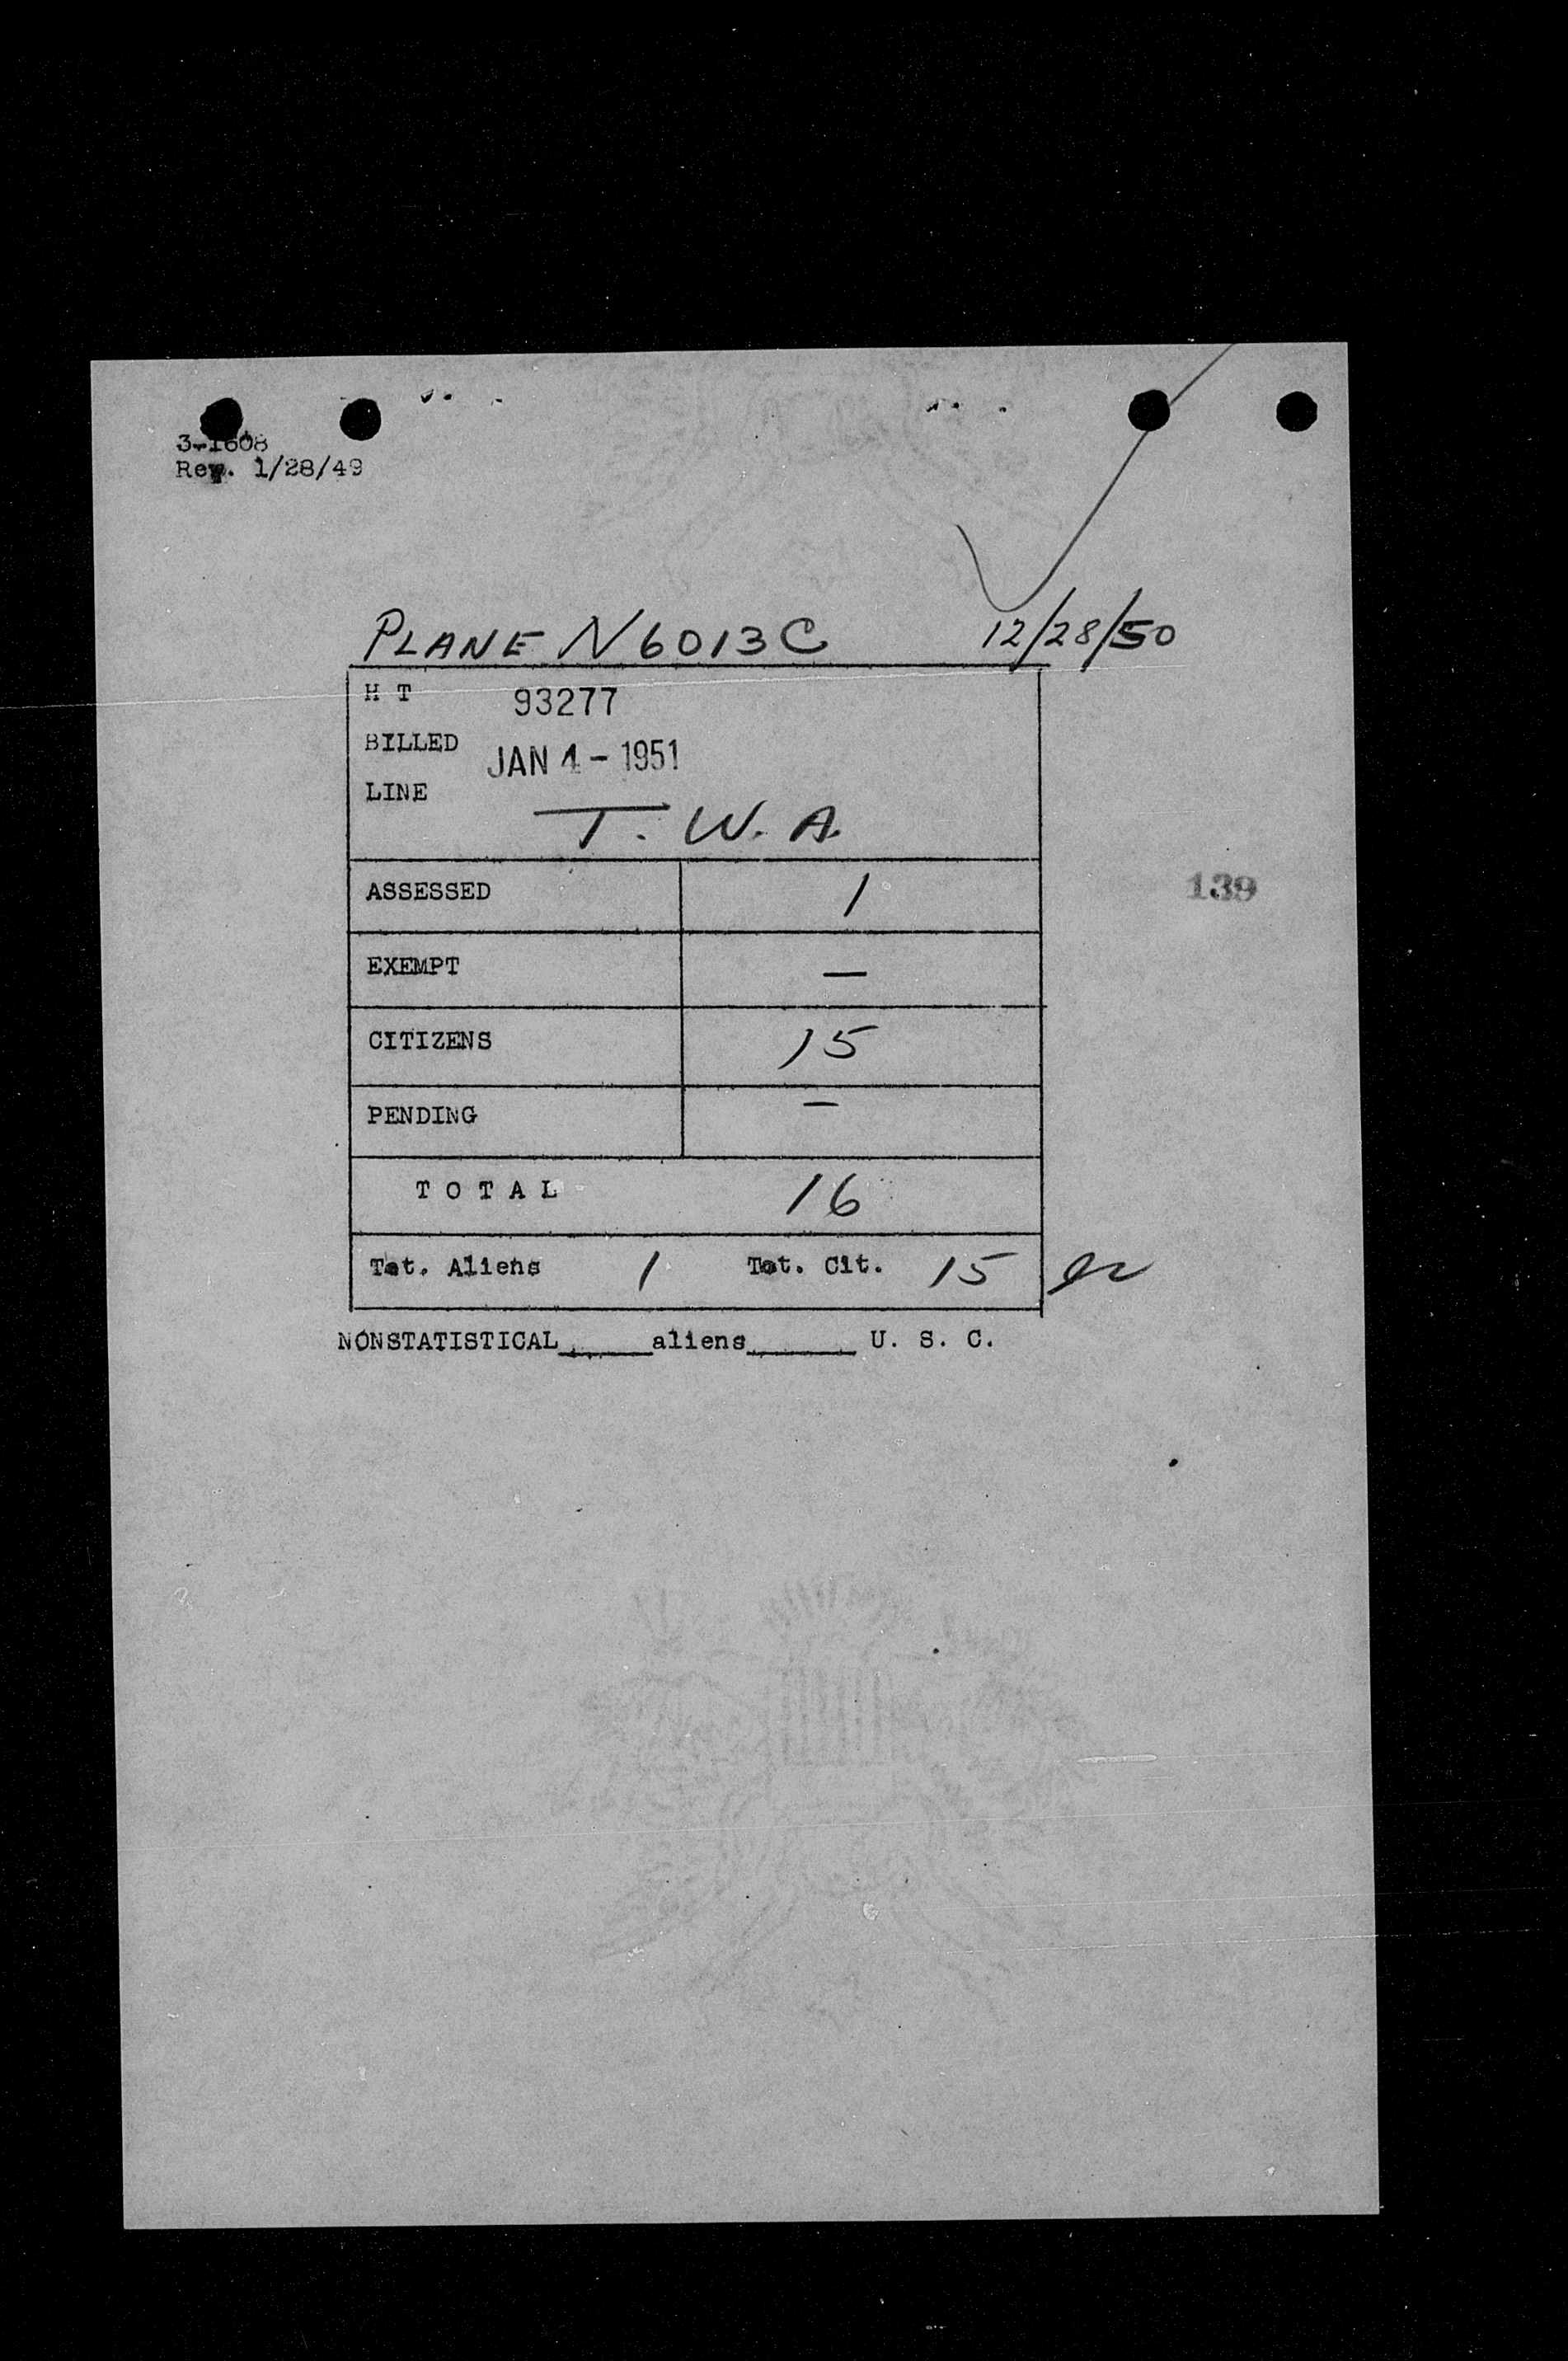 3-1608
Rev. 1/28/49
PLANE N6013C 12/28/50
H T 93277
BILLED JAN 4 - 1951
LINE T. W. A.
ASSESSED 1
139
EXEMPT —
CITIZENS 15
PENDING —
TOTAL 16
Tot. Aliens 1 Tot. Cit. 15
NONSTATISTICAL_____aliens______ U. S. C.